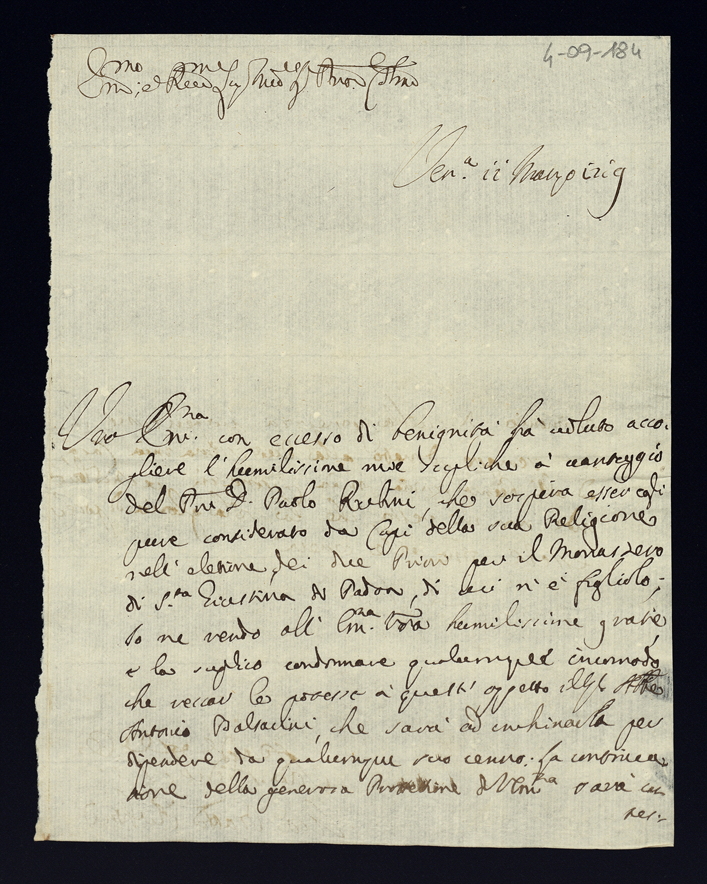 4-09-184
Em.mo e Re
Ven.a 11 Marzo
Vra Em.na con eccesso di benignità hà voluto acco-
gliere l'humilissime mie supliche à vantaggio
del Pre D. Paolo che sospira esser egli
pure considerato da Capi della sua Religione
nell'elettione, dei due Priori per il Monastero
di S.ta Giustina di Padoa, di cui n'è figliolo;
Io ne rendo all'Em.na Vra humilissime gratie
e la suplico condonare qualunque incomodo
che recar le potesse à quest'oggetto Abbe
Antonio che sarà ad inchinarla per
dipendere da qualunque suo cenno: la continua-
tione della generosa Protettione di V Em.na sarà